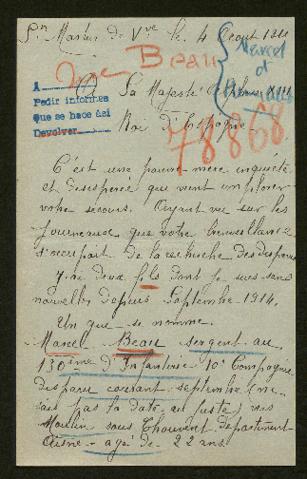 St Maxien de Vve le 4 Aout 19
Mme Beau
Marcel
et
A Sa Majesté Alphonse XIII
A
Pedir informes
que se hace así
Devolver
Roi d'Espagne
78868
C'est une pauvre mère inquiète
et désespérée que vient implorer
votre secours. Ayant vu sur les
journeaux que votre bienveillance
s'occupait de la recherche des disparus
J'ai deux fils dont je suis sans
nouvelles depuis Septembre 1914.
Un que se nomme
Marcel Beau sergent au
130ème d'Infanterie 10e Compagnie
disparu courant septembre (ne
sais pas la date au juste) vers
Moulin sous Thouvent département
Aisne - agé de 22 ans